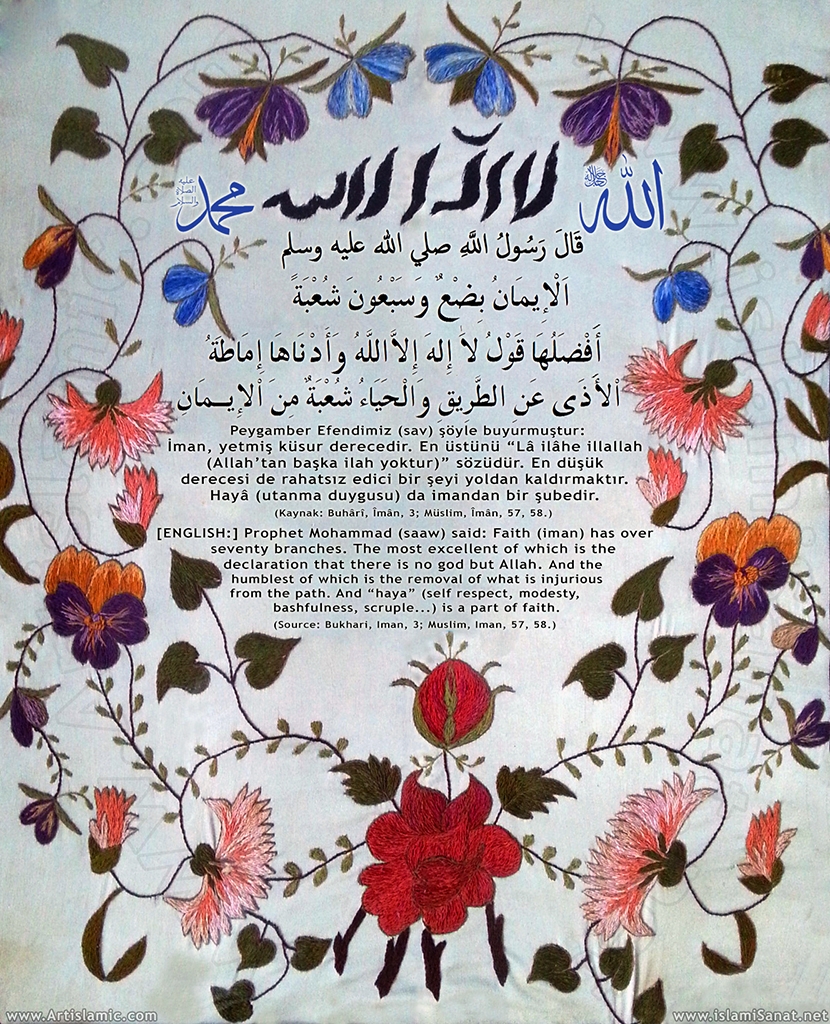 الله جل جلاله
لا اله الا الله
محمد عليه الصلاة والسلام
قَالَ رَسُولُ اللَّهِ صلي الله عليه وسلم
اَلْإِيمَانُ بِضْعٌ وَسَبْعُونَ شُعْبَةً
أَفْضَلُهَا قَوْلُ لاَ إِلهَ إِلاَّ اللَّهُ وَأَدْنَاهَا إِمَاطَةُ
اْلأَذَى عَنِ الطَّرِيقِ وَالْحَيَاءُ شُعْبَةٌ مِنَ اْلإِيــمَانِ
Peygamber Efendimiz (sav) şöyle buyurmuştur:
İman, yetmiş küsur derecedir. En üstünü “Lâ ilâhe illallah
(Allah’tan başka ilah yoktur)” sözüdür. En düşük
derecesi de rahatsız edici bir şeyi yoldan kaldırmaktır.
Hayâ (utanma duygusu) da imandan bir şubedir.
(Kaynak: Buhârî, Îmân, 3; Müslim, Îmân, 57, 58.)
[ENGLISH:] Prophet Mohammad (saaw) said: Faith (iman) has over
seventy branches. The most excellent of which is the
declaration that there is no god but Allah. And the
humblest of which is the removal of what is injurious
from the path. And “haya” (self respect, modesty,
bashfulness, scruple...) is a part of faith.
(Source: Bukhari, Iman, 3; Muslim, Iman, 57, 58.)
www.Artislamic.com
www.islamiSanat.net